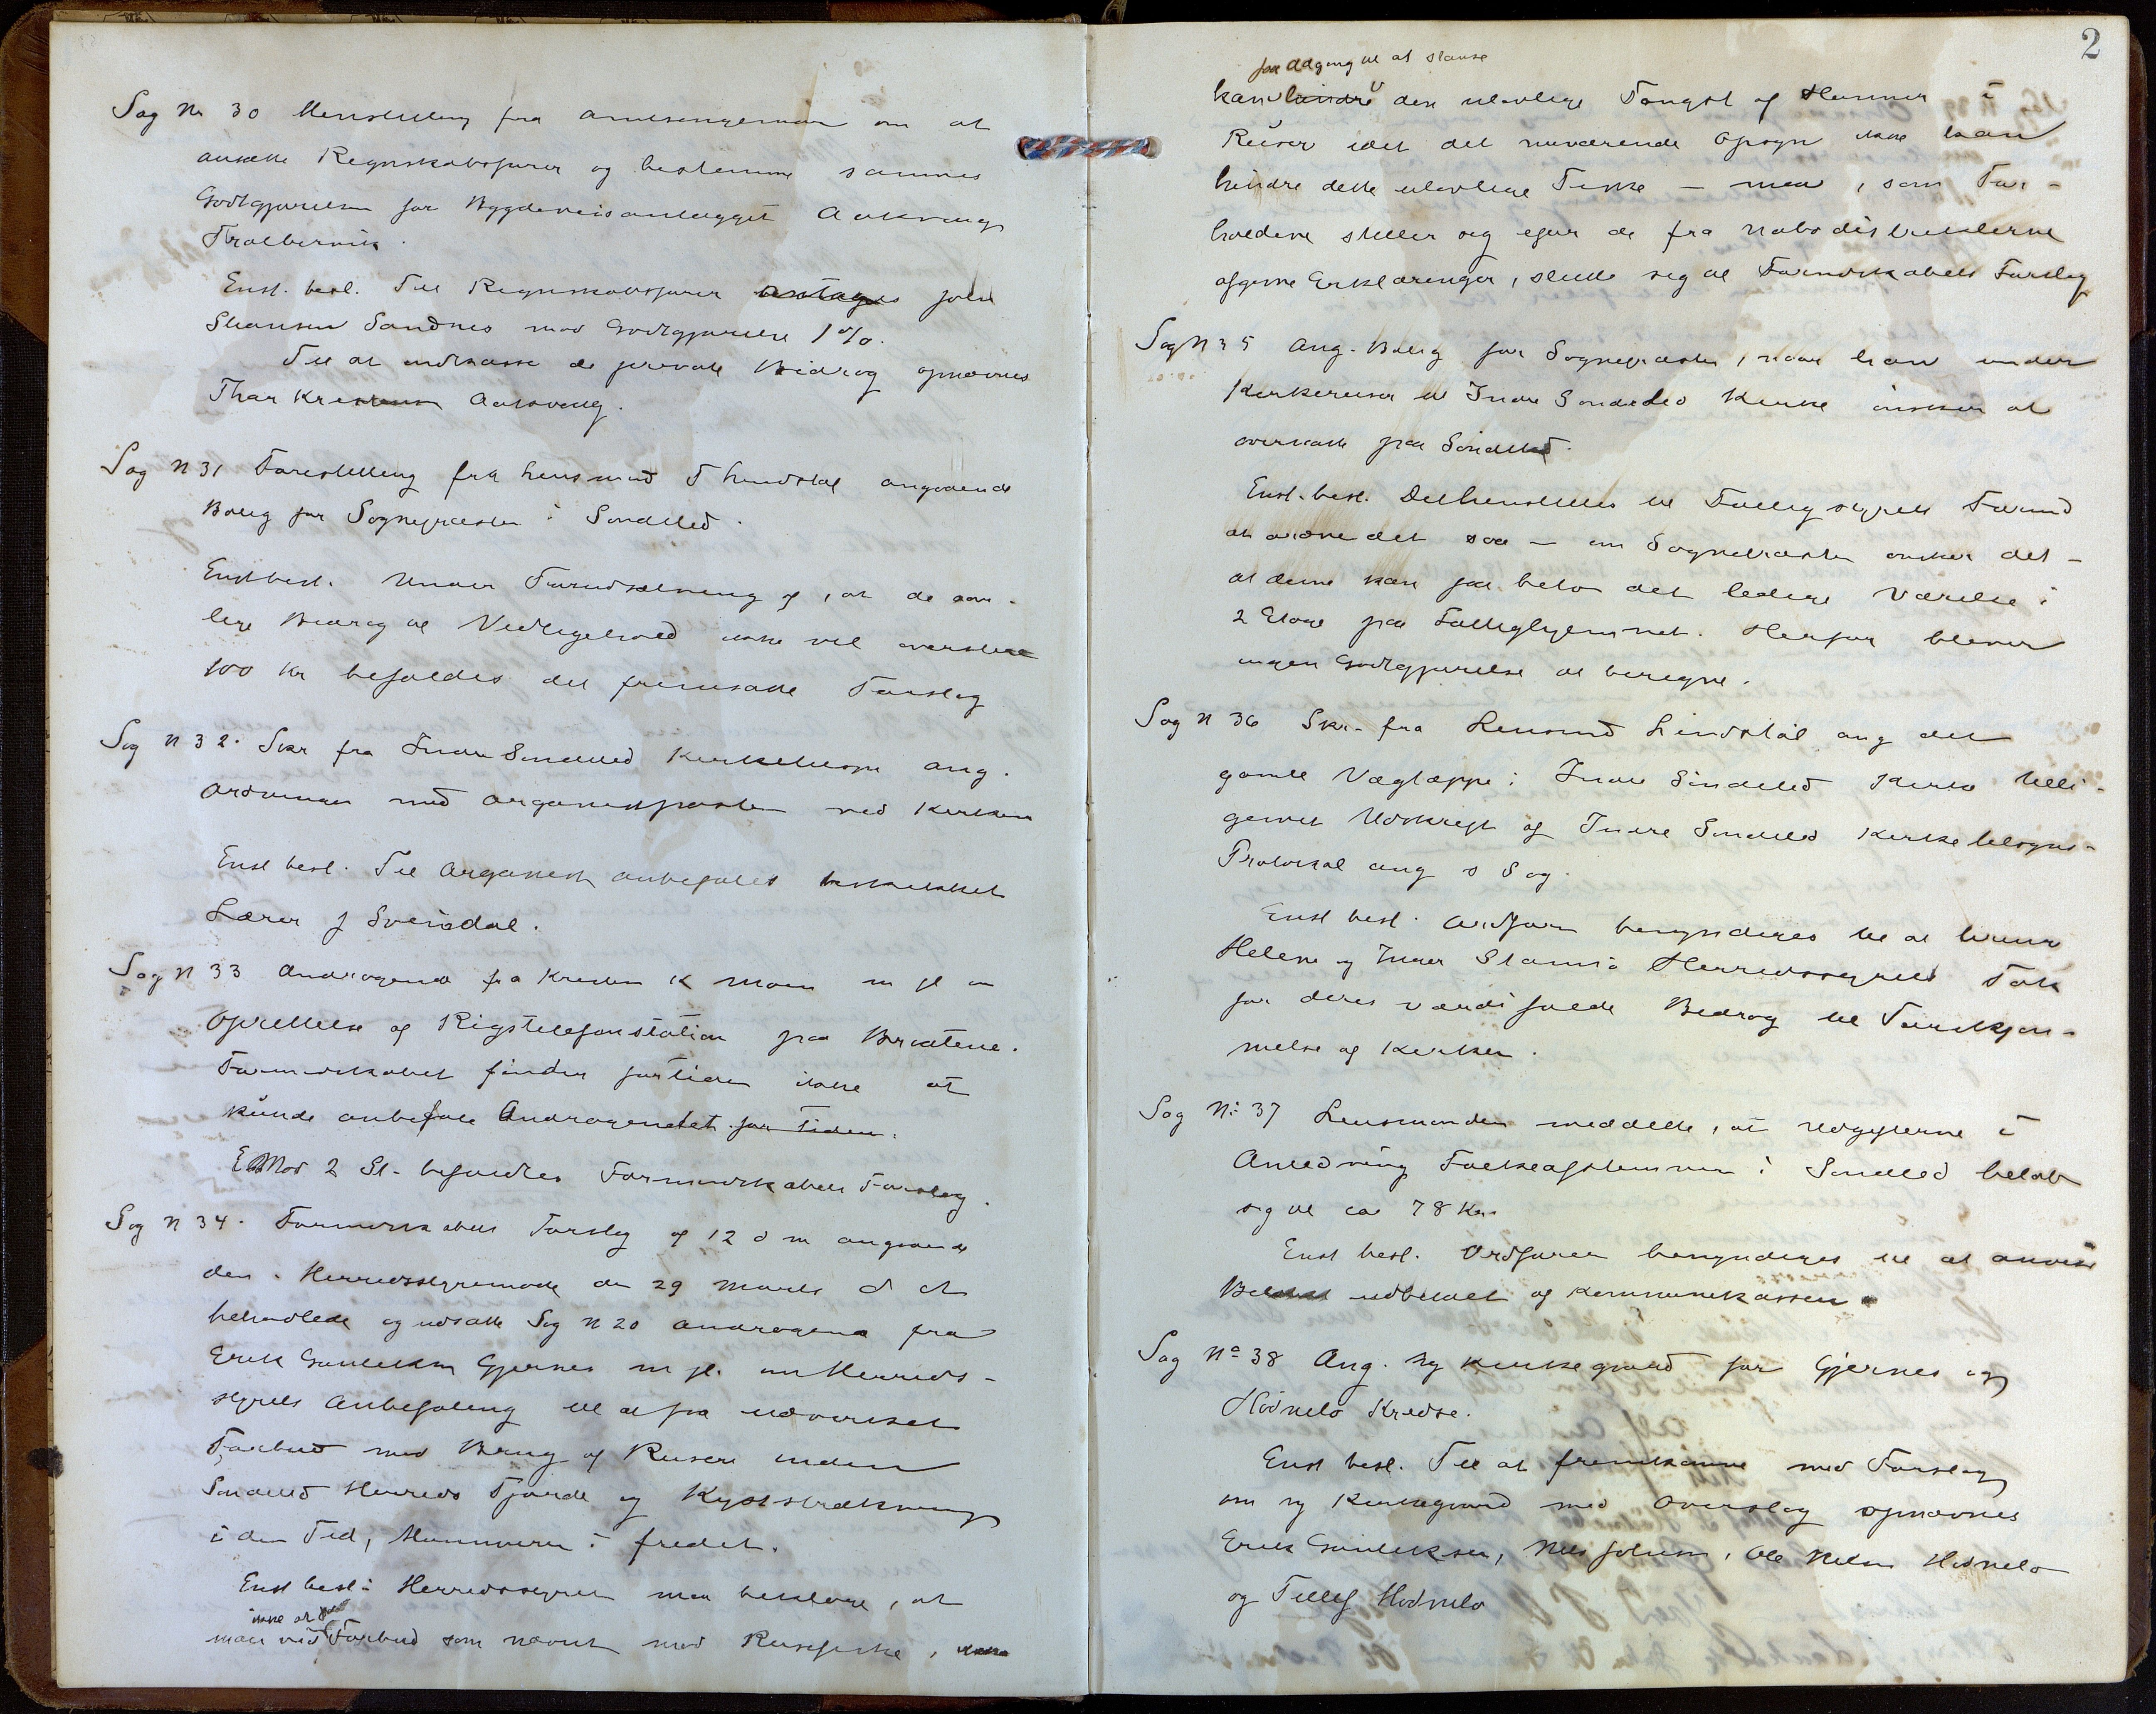 Sag Nr 30 Henstilling fra Amtsingeniøren om at
ansætte Regnskabsfører og bestemme sammes
Godtgjørelse for Bygdeveisanlægget Aakvaag
Trolbervik.
Enst. besl. Til Regnskabsfører antages John
Stiansen Sandnes mod Godtgjørelse 1 %.
Til at indkasse de private Bidrag opnævnes
Thor Kristensen Aakvaag.
Sag N 31 Forestilling fra Lensmand T Lindstøl angaaende
Bolig for Sognepræsten i Søndeled.
Enst besl. Under Forudsætning af, at de aar-
lige Bidrag til Vedligehold ikke vil overstige
100 Kr befaldes det fremsatte Forslag
Sag N 32. Skr fra Indre Søndeled Kirketilsyn ang.
Ordningen med Organistposten ved Kirken
Enst besl. Til Organist anbefales beskikket
Lærer J Sveindal.
Sag N 33 Andragende fra Kristen K Moen m fl om
Oprettelse af Rigstelefonstation paa Bråtene.
Formandskabet finder fortiden ikke at
kunde anbefale Andragendet for Tiden.
Mod 2 St. befaldtes Formandskabets Forslag.
Sag N 34. Formandskabets Forslag af 12 d m angaaende
den i Herredsstyremøde den 29 Marts d A
behandlede og udsatte Sag N 20 Andragende fra
Erik Gunleksen Gjernes m fl. om Herreds-
styrets Anbefaling til at faa udvirket
Forbud mod Brug af Ruser inden
Søndeled Herreds Fjorde og Kyststrækning
i den Tid, Hummeren i fredet.
Enst besl. Herredsstyret maa beklage, at
ikke at faa
man ved Forbud som nævnt mod Rusefiske, ikke
2
faa Adgang til at standse
kan hindre den ulovlige Fangst af Hummer i
Ruser idet det nuværende Opsyn ikke kan
hindre dette ulovlige Fiske – men, som For-
holdene stiller sig efter de fra Nabodistrikterne
afgivne Erklæringer, slutte sig til Formandskabets Forslag
Sag N 35 Ang. Bolig for Sognepræsten, naar han under
Kirkereiser til Indre Søndeled Kirke ønsker at
overnatte paa Søndeled.
Enst. besl. Det henstilles til Fattigstyrets Formd
at ordne det saa – om Sognepræsten ønsker det –
at denne kan faa bebo det ledige Værelse i
2 Etage paa Fattighjemmet. Herfor bliver
ingen Godtgjørelse at beregne.
Sag N 36 Skr. fra Lensmd Lindstøl ang det
gamle Vægtæppe i Indre Søndeled Kirke tilli-
gemed Udskrift af Indre Søndeled Kirketilsyns-
Protokol ang s Sag.
Enst besl. Ordføren bemyndiges til at bringe
Helene og Inger Stamsø Herredsstyrets Tak
for deres værdifulde Bidrag til Forskjøn-
nelse af Kirken.
Sag No 37 Lensmanden meddelte, at Udgifterne i
Anledning Folkeafstemningen i Søndeled beløb
sig til ca 78 Kr.
Enst besl. Ordføreren bemyndiges til at anvise
Beløbet udbetalt af Kommunekassen.
Sag No 38 Ang. ny Kirkegaard for Gjernes og
Hødnebø Kredse.
Enst besl. Til at fremkomme med Forslag
om ny Kirkegaard med Overslag opnævnes
Erik Gunleksen, Nils Johnsen, Ole Nilsen Hødnebø
og Tellef Hødnebø